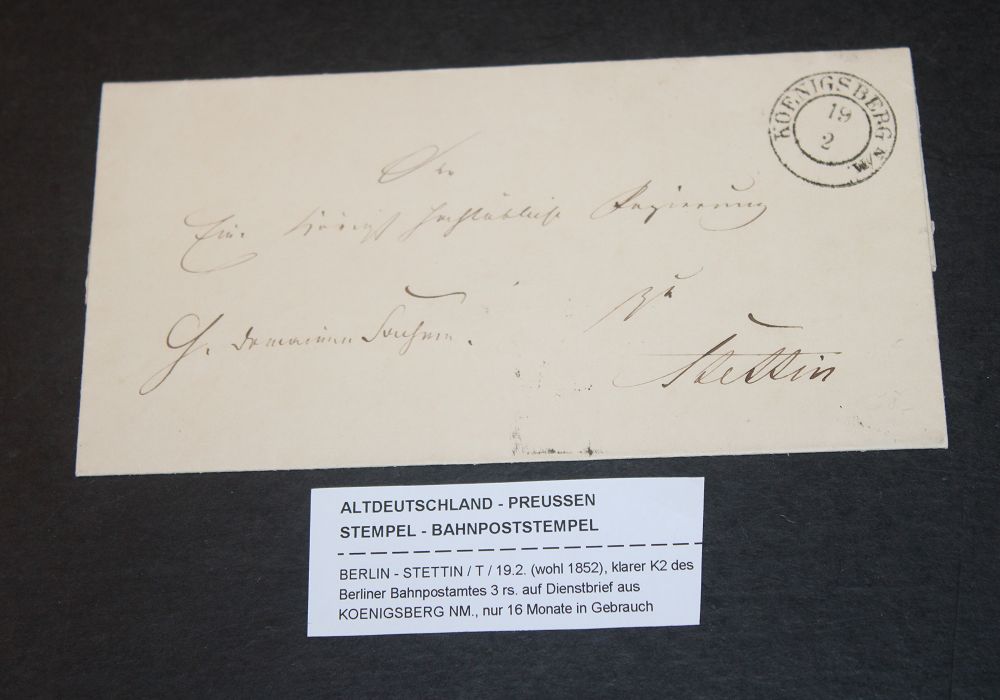 KOENIGSBERG N/M.
19
2
An
Eine Königl. Hochlöbliche Regierung
zu
H. Domainen Sachen.
Stettin
ALTDEUTSCHLAND - PREUSSEN
STEMPEL - BAHNPOSTSTEMPEL
BERLIN - STETTIN / T / 19.2. (wohl 1852), klarer K2 des
Berliner Bahnpostamtes 3 rs. auf Dienstbrief aus
KOENIGSBERG NM., nur 16 Monate in Gebrauch